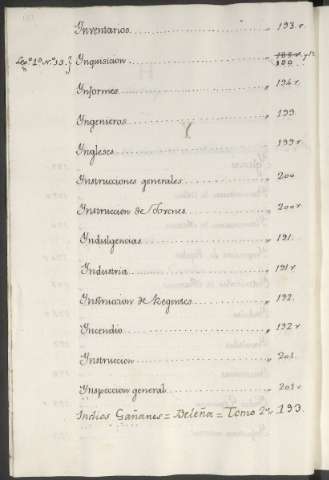 Inventarios " 193. v.
Leg.º 1º N.º 13. Inquisicion " y 12
Informes " 194. v.
Ingenieros " 199
Ingleses " 199 v
Instrucciones generales " 200
Instruccion de " 200 v
Indulgencias " 191.
Industria " 191 v
Instruccion de Regentes " 192.
Incendio " 192 v
Instruccion " 201
Inspeccion general " 201 v
Indios Gañanes = Beleña = Tomo 2º, 193.